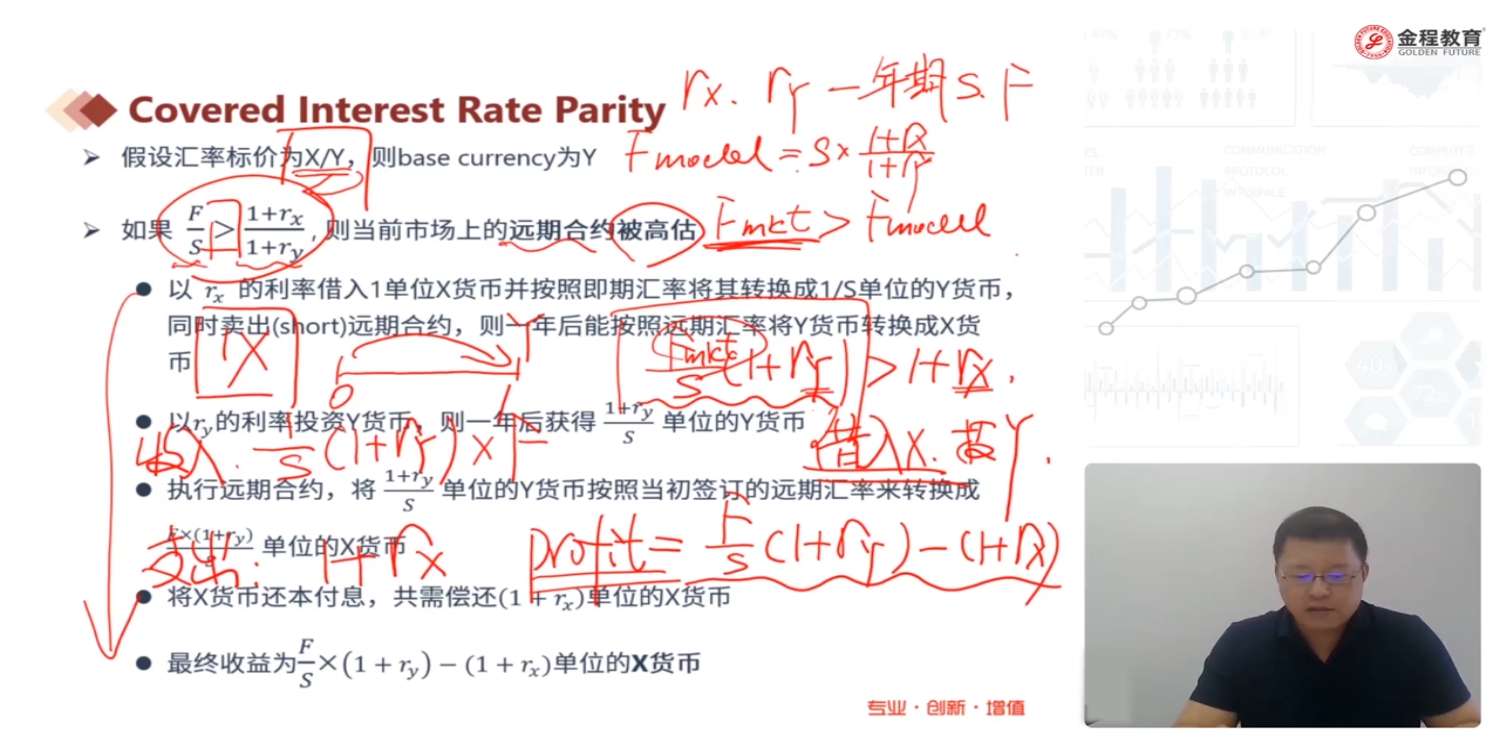 金程教育
GOLDEN FUTURE
Covered Interest Rate Parity
rx. ry 一年期 S. F
假设汇率标价为X/Y，则base currency为Y
Fmodel = S × (1+rx)/(1+ry)
如果 F/S > (1+rx)/(1+ry)，则当前市场上的远期合约被高估
Fmkt > Fmodel
以 rx 的利率借入1单位X货币并按照即期汇率将其转换成1/S单位的Y货币，
同时卖出(short)远期合约，则一年后能按照远期汇率将Y货币转换成X货
币
0
Y
1
Fmkt/S (1+ry) > 1+rx.
以ry的利率投资Y货币，则一年后获得 (1+ry)/S 单位的Y货币
收入. 1/S (1+ry) × F
借入X. 投Y.
执行远期合约，将 (1+ry)/S 单位的Y货币按照当初签订的远期汇率来转换成
F×(1+ry)/S 单位的X货币
支出: 1+rx
profit = F/S (1+ry) - (1+rx)
将X货币还本付息，共需偿还(1 + rx)单位的X货币
最终收益为F/S×(1 + ry) − (1 + rx)单位的X货币
专业 · 创新 · 增值